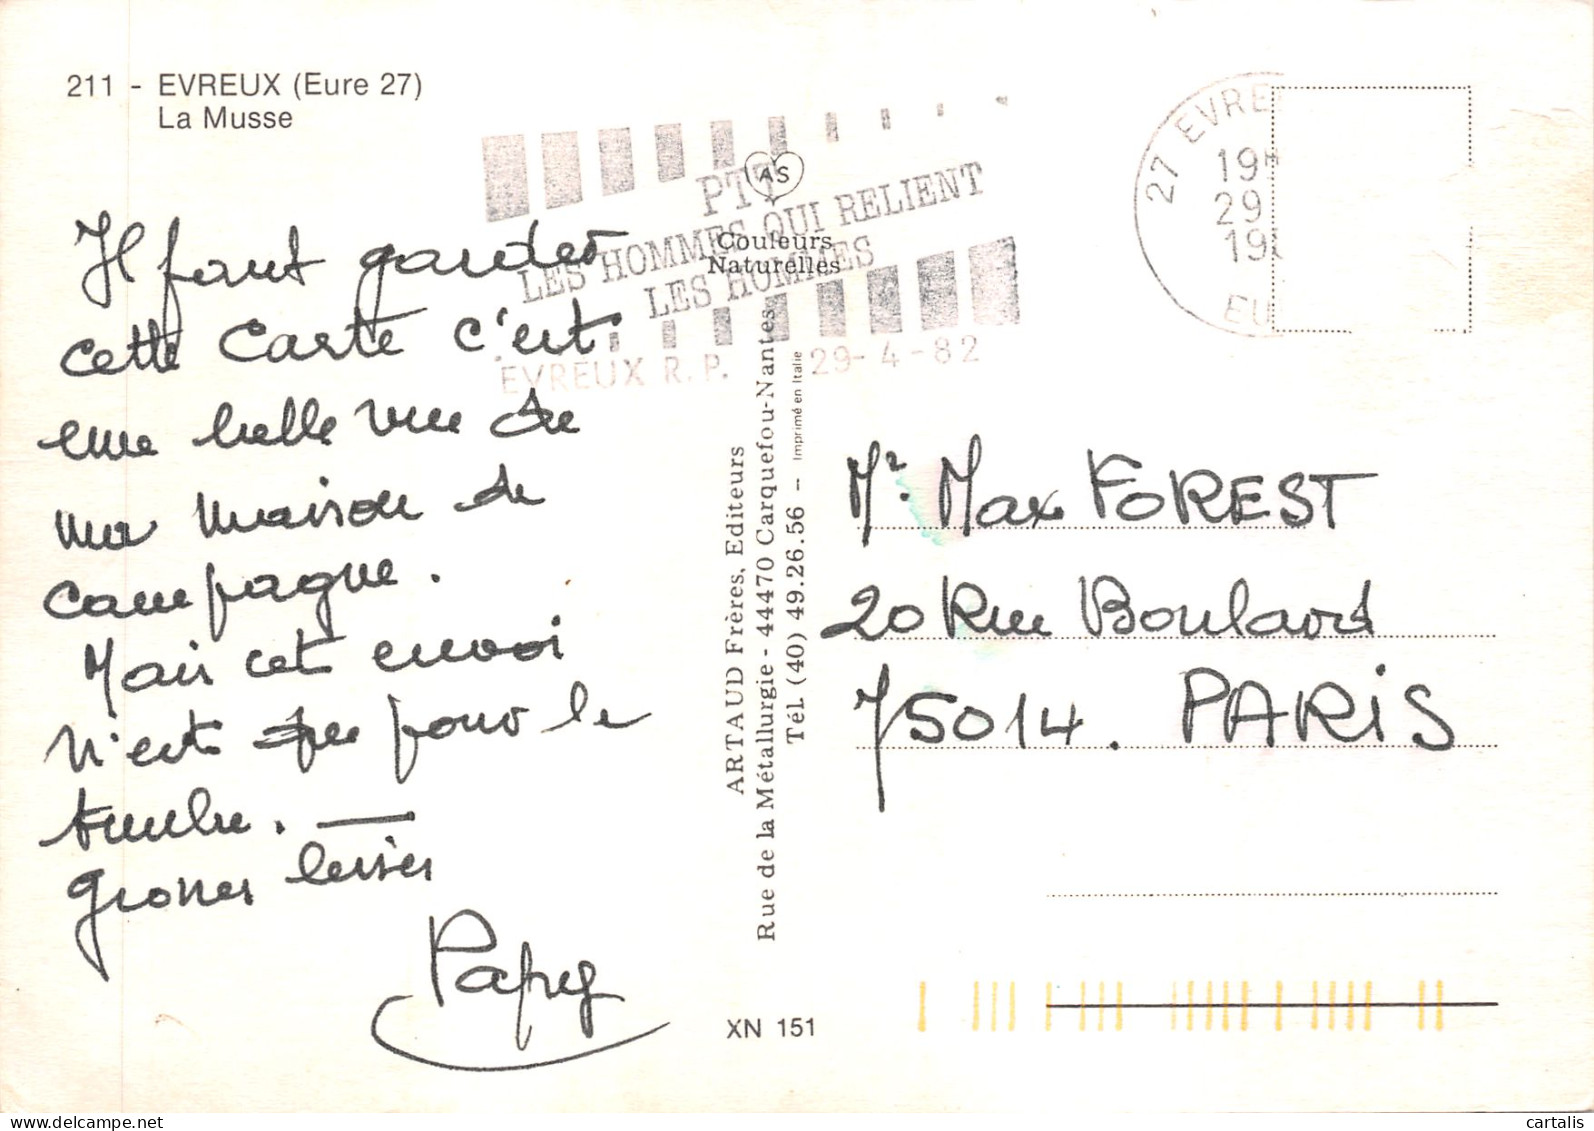 211 - EVREUX (Eure 27)
La Musse
Il faut garder
cette Carte c'est
une belle vue de
ma maison de
campagne.
Mais cet envoi
n'est que pour le
timbre. —
Grosses bises
Papy
PTT
LES HOMMES QUI RELIENT
LES HOMMES
EVREUX R.P. 29-4-82
AS
Couleurs
Naturelles
ARTAUD Frères, Editeurs
Rue de la Métallurgie - 44470 Carquefou-Nantes
Tél. (40) 49.26.56 – Imprimé en Italie
XN 151
27 EVRE
19H
29
19
EU
Mr. Max FOREST
20 Rue Boulard
75014. PARIS
delcampe.net
cartalis